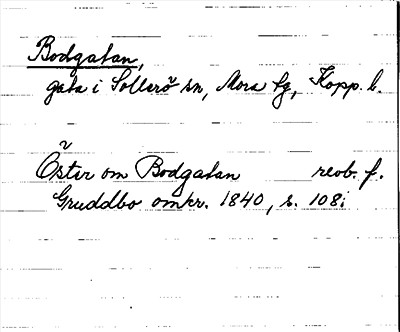 Bodgatan,
gata i Sollerö sn, Mora tg, Kopp. l.
Öster om Bodgatan reob. f.
Gruddbo omkr. 1840, s. 108;